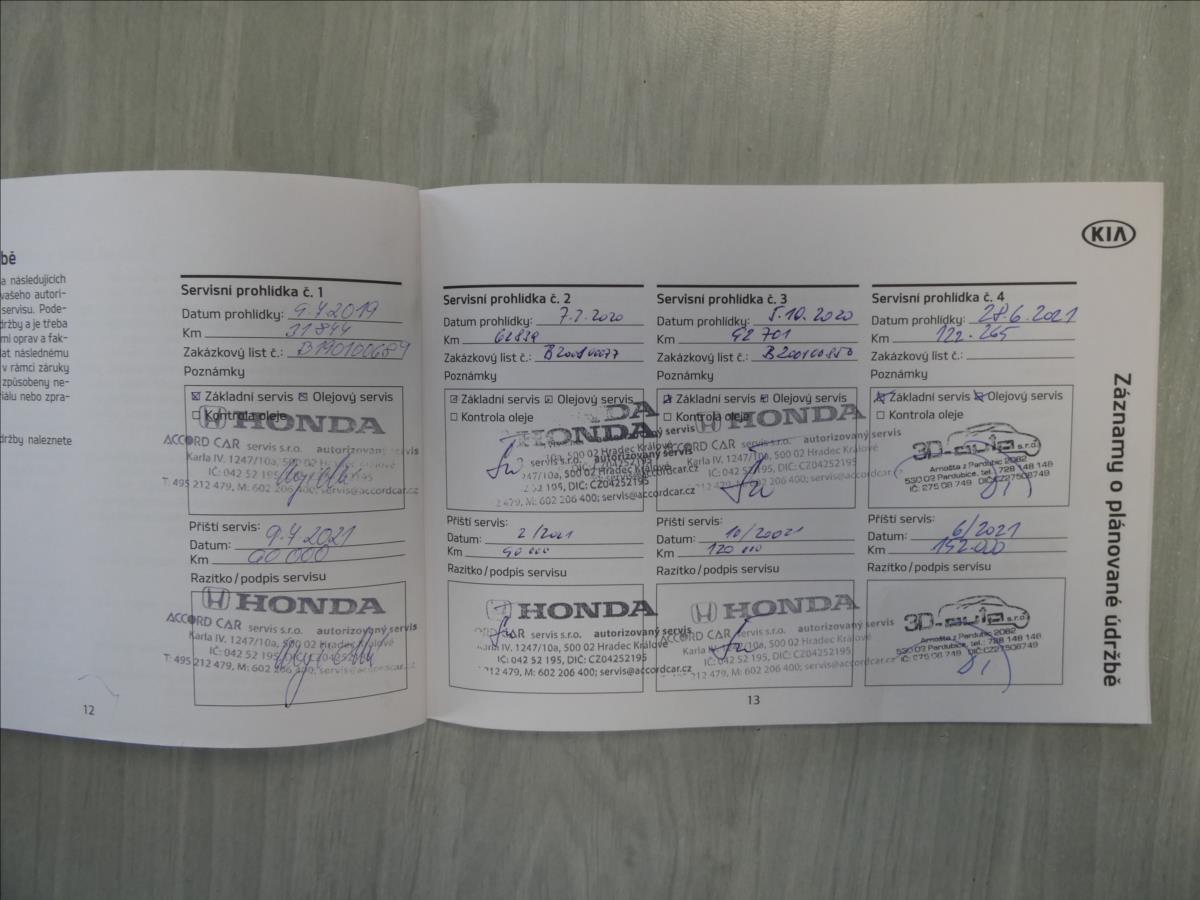 bě
a následujících
vašeho autori-
servisu. Pode-
držby a je třeba
mi oprav a fak-
lat následnému
v rámci záruky
způsobeny ne-
iálu nebo zpra-
držby naleznete
Servisní prohlídka č. 1
Datum prohlídky: 9.4.2019
Km 31 844
Zakázkový list č.: B190100689
Poznámky
Základní servis Olejový servis
Kontrola oleje
HONDA
ACCORD CAR servis s.r.o. autorizovaný servis
Karla IV. 1247/10a, 500 02 Hradec Králové
IČ: 042 52 195
T: 495 212 479, M: 602 206 400; servis@accordcar.cz
Příští servis:
Datum: 9.4.2021
Km 60 000
Razítko/podpis servisu
HONDA
ACCORD CAR servis s.r.o. autorizovaný servis
Karla IV. 1247/10a, 500 02 Hradec Králové
IČ: 042 52 195
T: 495 212 479, M: 602 206 400; servis@accordcar.cz
12
Servisní prohlídka č. 2
Datum prohlídky: 7.2.2020
Km 62839
Zakázkový list č.:
Poznámky
Základní servis Olejový servis
Kontrola oleje
HONDA
servis s.r.o. autorizovaný servis
47/10a, 500 02 Hradec Králové
195, DIČ: CZ04252195
2 479, M: 602 206 400; servis@accordcar.cz
Příští servis:
Datum: 2/2021
Km 90 000
Razítko/podpis servisu
HONDA
servis s.r.o. autorizovaný servis
Karla IV. 1247/10a, 500 02 Hradec Králové
IČ: 042 52 195, DIČ: CZ04252195
212 479, M: 602 206 400; servis@accordcar.cz
Servisní prohlídka č. 3
Datum prohlídky: 5.10.2020
Km 92 701
Zakázkový list č.: B200100850
Poznámky
Základní servis Olejový servis
Kontrola oleje
HONDA
CORD CAR servis s.r.o. autorizovaný servis
Karla IV. 1247/10a, 500 02 Hradec Králové
IČ: 042 52 195, DIČ: CZ04252195
479, M: 602 206 400; servis@accordcar.cz
Příští servis:
Datum: 10/20021
Km 120 000
Razítko/podpis servisu
HONDA
CORD CAR servis s.r.o. autorizovaný servis
Karla 1247/10a, 500 02 Hradec Králové
IČ: 042 52 195, DIČ: CZ04252195
212 479, M: 602 206 400; servis@accordcar.cz
13
KIA
Servisní prohlídka č. 4
Datum prohlídky: 28.6.2021
Km 122.265
Zakázkový list č.:
Poznámky
Základní servis Olejový servis
Kontrola oleje
3D-auta s.r.o.
Arnošta z Pardubic 2082
530 02 Pardubice, tel.: 728 148 148
IČ: 275 08 749 DIČ:CZ27508749
Příští servis:
Datum: 6/2021
Km 152.000
Razítko/podpis servisu
3D-auta s.r.o.
Arnošta z Pardubic 2082
530 02 Pardubice, tel.: 728 148 148
IČ: 275 08 749 DIČ:CZ27508749
Záznamy o plánované údržbě